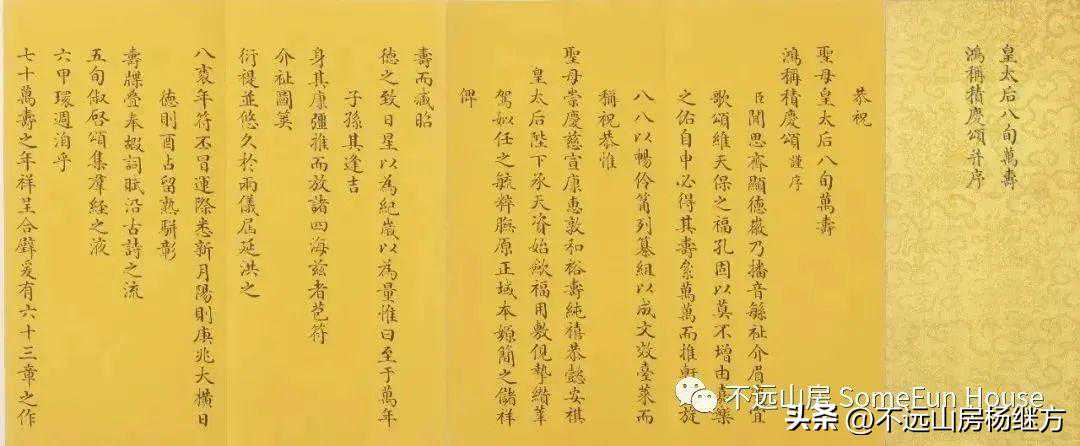 皇太后八旬萬壽
鴻稱積慶頌并序
恭祝
聖母皇太后八旬萬壽
鴻稱積慶頌謹序
臣聞思齊顯德徽乃播音緜祉介眉
歌頌維天保之福孔固以莫不增由
之佑自申必得其壽衆萬萬而推
八八以暢伶籥列纂組以成文效臺萊而
稱祝恭惟
聖母崇慶慈宣康惠敦和裕壽純禧恭懿安祺
皇太后陛下承天資始歛福用敷俔摯纘莘
駕姒任之毓粹膴原正域本嫄簡之儲祥
俾
壽而臧昭
德之致日星以為紀歲以為量惟曰至于萬年
子孫其逢吉
身其康彊推而放諸四海兹者苞符
介祉圖箕
衍禔並悠久於兩儀屆延洪之
八袠年符丕冒運際悉新月陽則庚兆大橫日
德則酉占留熟駢彰
壽牒疊奉嘏詞賦沿古詩之流
五旬俶啓頌集羣經之液
六甲環週洎乎
七十萬壽之年祥呈合璧爰有六十三章之作
不远山房 SomeFun House
头条 @不远山房杨继方